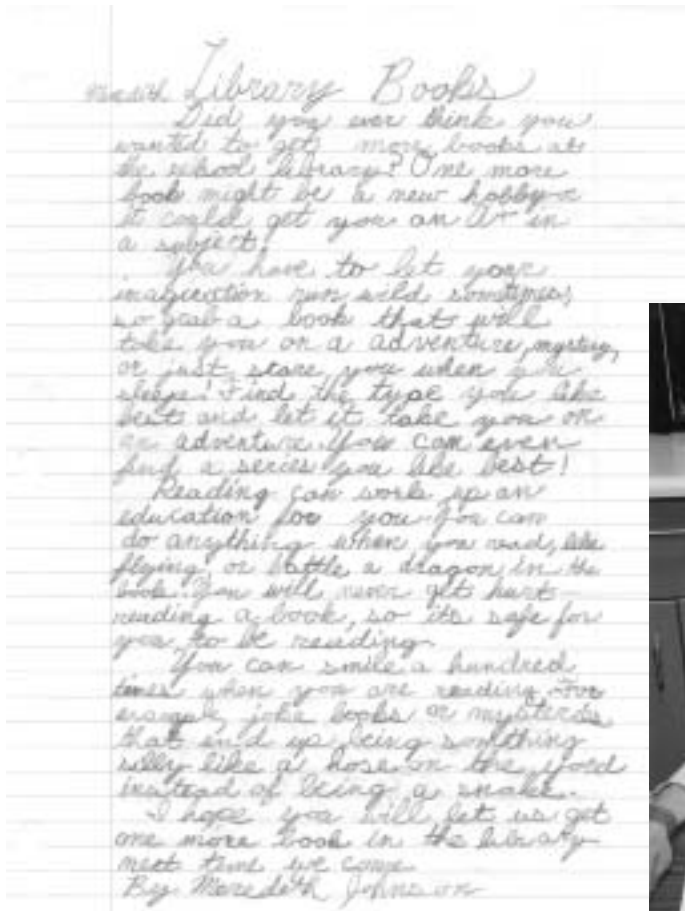 Library Books
Did you ever think you
wanted to get more books at
the school library? One more
book might be a new hobby or
it could get you an A+ in
a subject.
You have to let your
imagination run wild sometimes,
so grab a book that will
take you on a adventure, mystery,
or just scare you when you
sleep! Find the type you like
best and let it take you on
an adventure. You can even
find a series you like best!
Reading can work up an
education for you. You can
do anything when you read, like
flying or battle a dragon in the
book. You will never get hurt
reading a book, so its safe for
you to be reading.
You can smile a hundred
times when you are reading. For
example, joke books or mysteries
that end up being something
silly like a hose on the yard
instead of being a snake.
I hope you will let us get
one more book in the library
next time we come.
By Meredith Johnson